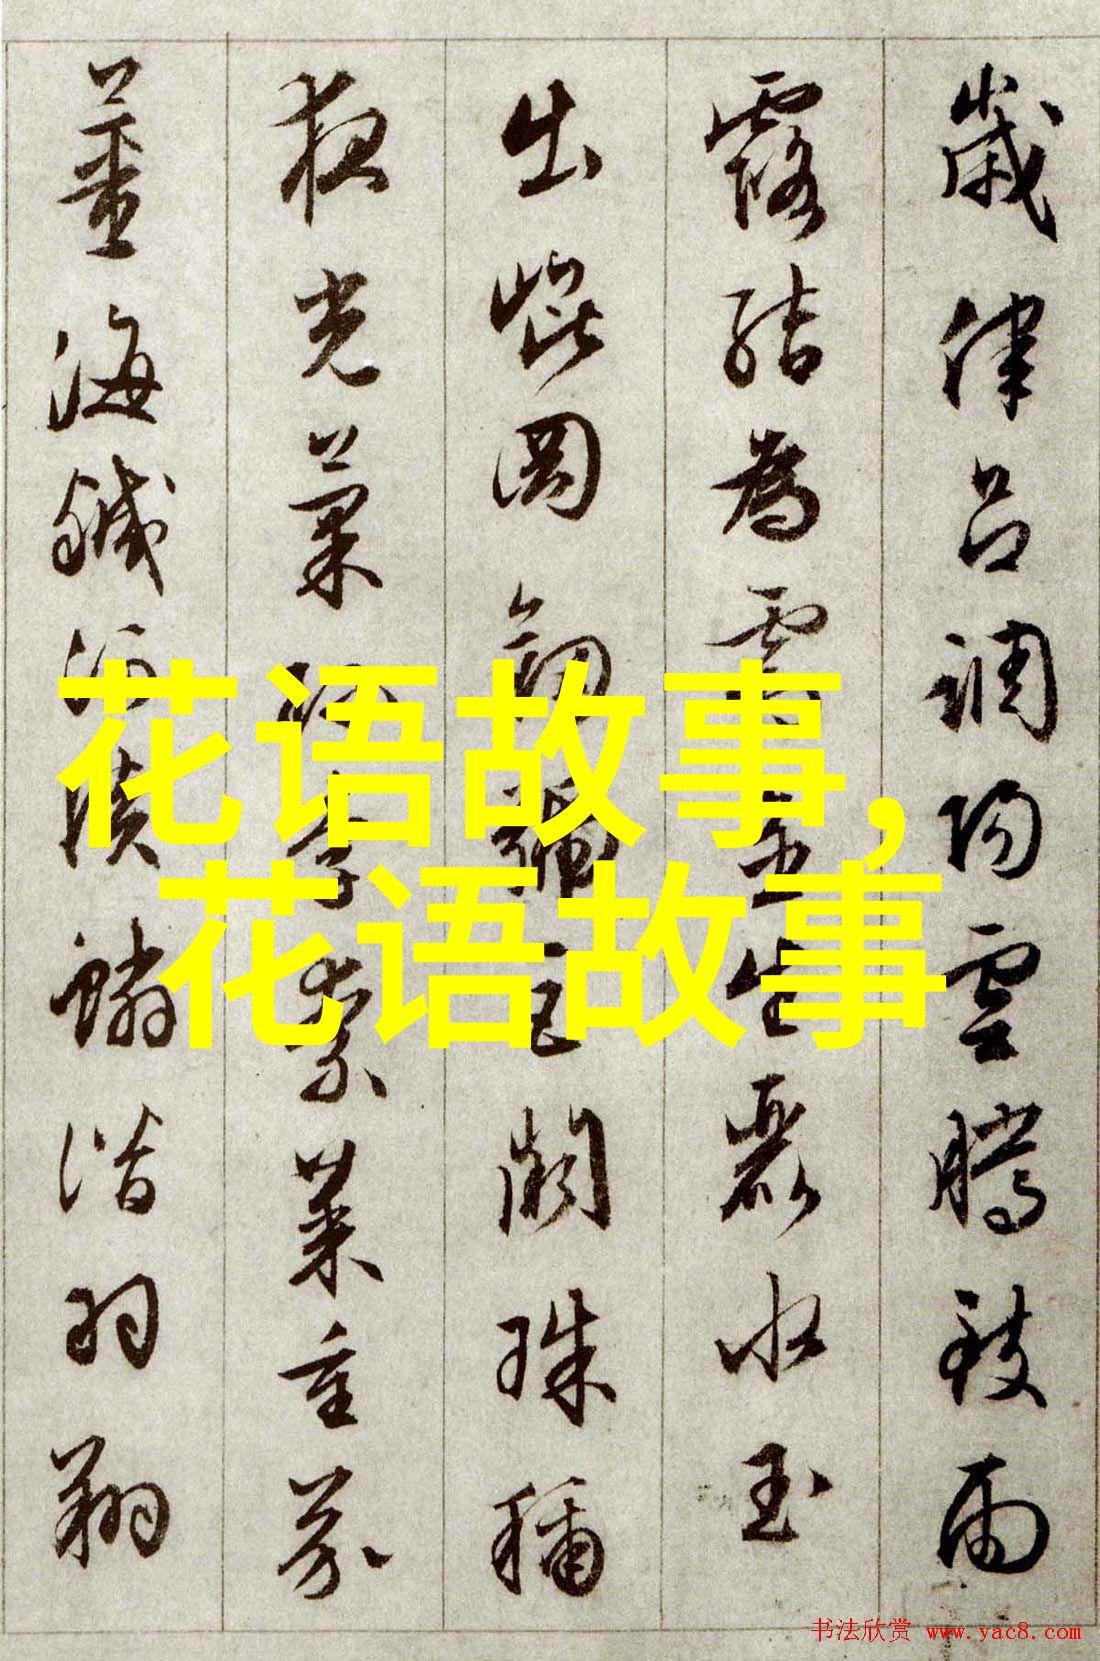 歲律呂調陽雲騰致雨
露結為霜金生麗水玉
出崐岡劍號巨闕珠稱
夜光菓珍李柰菜重芥
薑海鹹河淡鱗潛羽翔
花语故事,
花语故事
书法欣赏 www.yac8.com